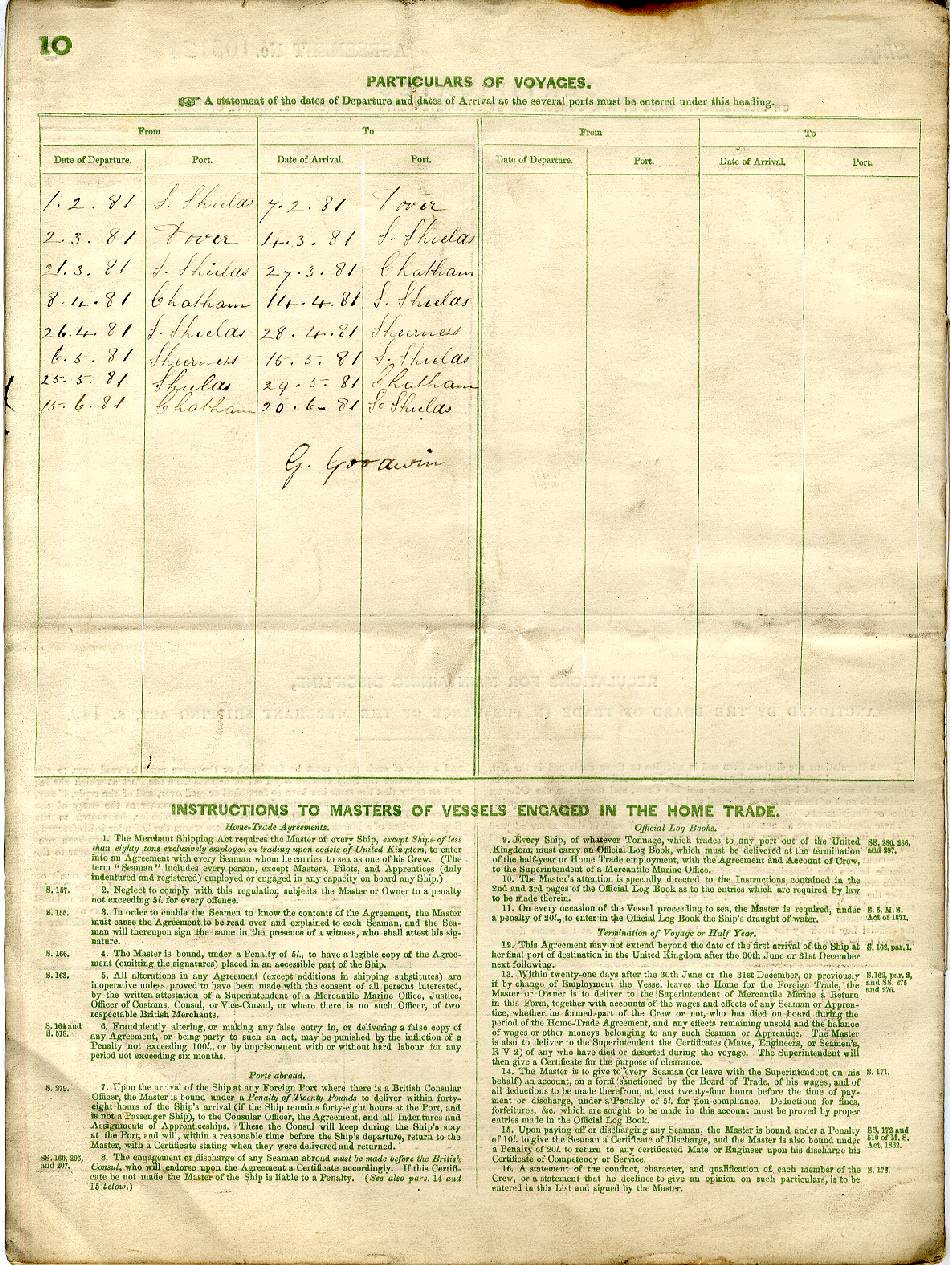 10
PARTICULARS OF VOYAGES.
A statement of the dates of Departure and dates of Arrival at the several ports must be entered under this heading.
From To From To
Date of Departure. Port. Date of Arrival. Port. Date of Departure. Port. Date of Arrival. Port.
1.2.81 S. Shields 7.2.81 Dover
2.3.81 Dover 14.3.81 S. Shields
21.3.81 S. Shields 27.3.81 Chatham
8.4.81 Chatham 14.4.81 S. Shields
26.4.81 S. Shields 28.4.81 Sheerness
6.5.81 Sheerness 15.5.81 S. Shields
25.5.81 Shields 29.5.81 Chatham
15.6.81 Chatham 20.6.81 So Shields
G. Goodwin
INSTRUCTIONS TO MASTERS OF VESSELS ENGAGED IN THE HOME TRADE.
Home-Trade Agreements.
1. The Merchant Shipping Act requires the Master of every Ship, except Ships of less
than eighty tons exclusively employed in trading upon coasts of United Kingdom, to enter
into an Agreement with every Seaman whom he carries to sea as one of his Crew. (The
term "Seaman" includes every person, except Masters, Pilots, and Apprentices (duly
indentured and registered) employed or engaged in any capacity on board any Ship.)
S. 157. 2. Neglect to comply with this regulation subjects the Master or Owner to a penalty
not exceeding 5l. for every offence.
3. In order to enable the Seamen to know the contents of the Agreement, the Master
must cause the Agreement to be read over and explained to each Seaman, and the Sea-
man will thereupon sign the same in the presence of a witness, who shall attest his sig-
nature.
S. 166. 4. The Master is bound, under a Penalty of 5l., to have a legible copy of the Agree-
ment (omitting the signatures) placed in an accessible part of the Ship.
S. 163. 5. All alterations in any Agreement (except additions in shipping substitutes) are
inoperative unless proved to have been made with the consent of all persons interested,
by the written attestation of a Superintendent of a Mercantile Marine Office, Justice,
Officer of Customs, Consul, or Vice-Consul, or where there is no such Officer, of two
respectable British Merchants.
6. Fraudulently altering, or making any false entry in, or delivering a false copy of
any Agreement, or being party to such an act, may be punished by the infliction of a
Penalty not exceeding 100l., or by imprisonment with or without hard labour for any
period not exceeding six months.
Ports abroad.
S. 279. 7. Upon the arrival of the Ship at any Foreign Port where there is a British Consular
Officer, the Master is bound under a Penalty of Twenty Pounds to deliver within forty-
eight hours of the Ship's arrival (if the Ship remains forty-eight hours at the Port, and
is not a Passenger Ship), to the Consular Officer, the Agreement, and all Indentures and
Assignments of Apprenticeships. These the Consul will keep during the Ship's stay
at the Port, and will, within a reasonable time before the Ship's departure, return to the
Master, with a Certificate stating when they were delivered and returned.
8. The engagement or discharge of any Seaman abroad must be made before the British
Consul, who will endorse upon the Agreement a Certificate accordingly. If this Certifi-
cate be not made the Master of the Ship is liable to a Penalty. (See also pars. 14 and
15 below.)
Official Log Books.
9. Every Ship, of whatever Tonnage, which trades to any port out of the United
Kingdom, must carry an Official Log Book, which must be delivered at the termination
of the half-year or Home Trade employment, with the Agreement and Account of Crew,
to the Superintendent of a Mercantile Marine Office.
10. The Master's attention is specially directed to the Instructions contained in the
2nd and 3rd pages of the Official Log Book as to the entries which are required by law
to be made therein.
11. On every occasion of the Vessel proceeding to sea, the Master is required, under
a penalty of 20l., to enter in the Official Log Book the Ship's draught of water.
Termination of Voyage or Half Year.
12. This Agreement may not extend beyond the date of the first arrival of the Ship at
her final port of destination in the United Kingdom after the 30th June or 31st December
next following.
13. Within twenty-one days after the 30th June or the 31st December, or previously
if by change of Employment the Vessel leaves the Home for the Foreign Trade, the
Master or Owner is to deliver to the Superintendent of Mercantile Marine a Return
in this Form, together with accounts of the wages and effects of any Seaman or Appren-
tice, whether he formed part of the Crew or not, who has died on board during the
period of the Home-Trade Agreement, and any effects remaining unsold and the balance
of wages or other moneys belonging to any such Seaman or Apprentice. The Master
is also to deliver to the Superintendent the Certificates (Mates, Engineers, or Seamen's,
R V 2) of any who have died or deserted during the voyage. The Superintendent will
then give a Certificate for the purpose of clearance.
S. 171. 14. The Master is to give to every Seaman (or leave with the Superintendent on his
behalf) an account, on a form sanctioned by the Board of Trade, of his wages, and of
all deductions to be made therefrom, at least twenty-four hours before the time of pay-
ment or discharge, under a Penalty of 5l. for non-compliance. Deductions for fines,
forfeitures, &c. which are sought to be made in this account must be proved by proper
entries made in the Official Log Book.
15. Upon paying off or discharging any Seaman, the Master is bound under a Penalty
of 10l. to give the Seaman a Certificate of Discharge, and the Master is also bound under
a Penalty of 20l. to return to any certificated Mate or Engineer upon his discharge his
Certificate of Competency or Service.
16. A statement of the conduct, character, and qualification of each member of the
Crew, or a statement that he declines to give an opinion on such particulars, is to be
entered in this List and signed by the Master.